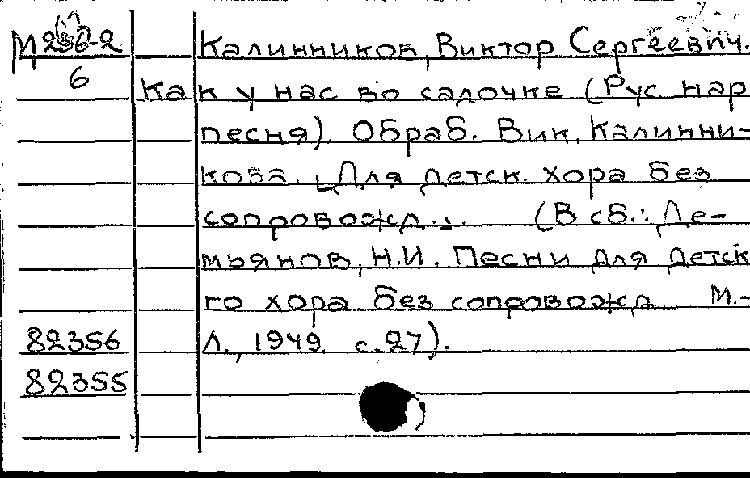 М 250-2 Калинников, Виктор Сергеевич.
6 Как у нас во садочке (Рус. нар
песня). Обраб. Вик. Калинни-
кова. Для детск. хора без
сопровожд... (В сб.: Де-
мьянов, Н.И. Песни для детск
го хора без сопровожд М.-
82356 Л., 1949. с.27).
82355